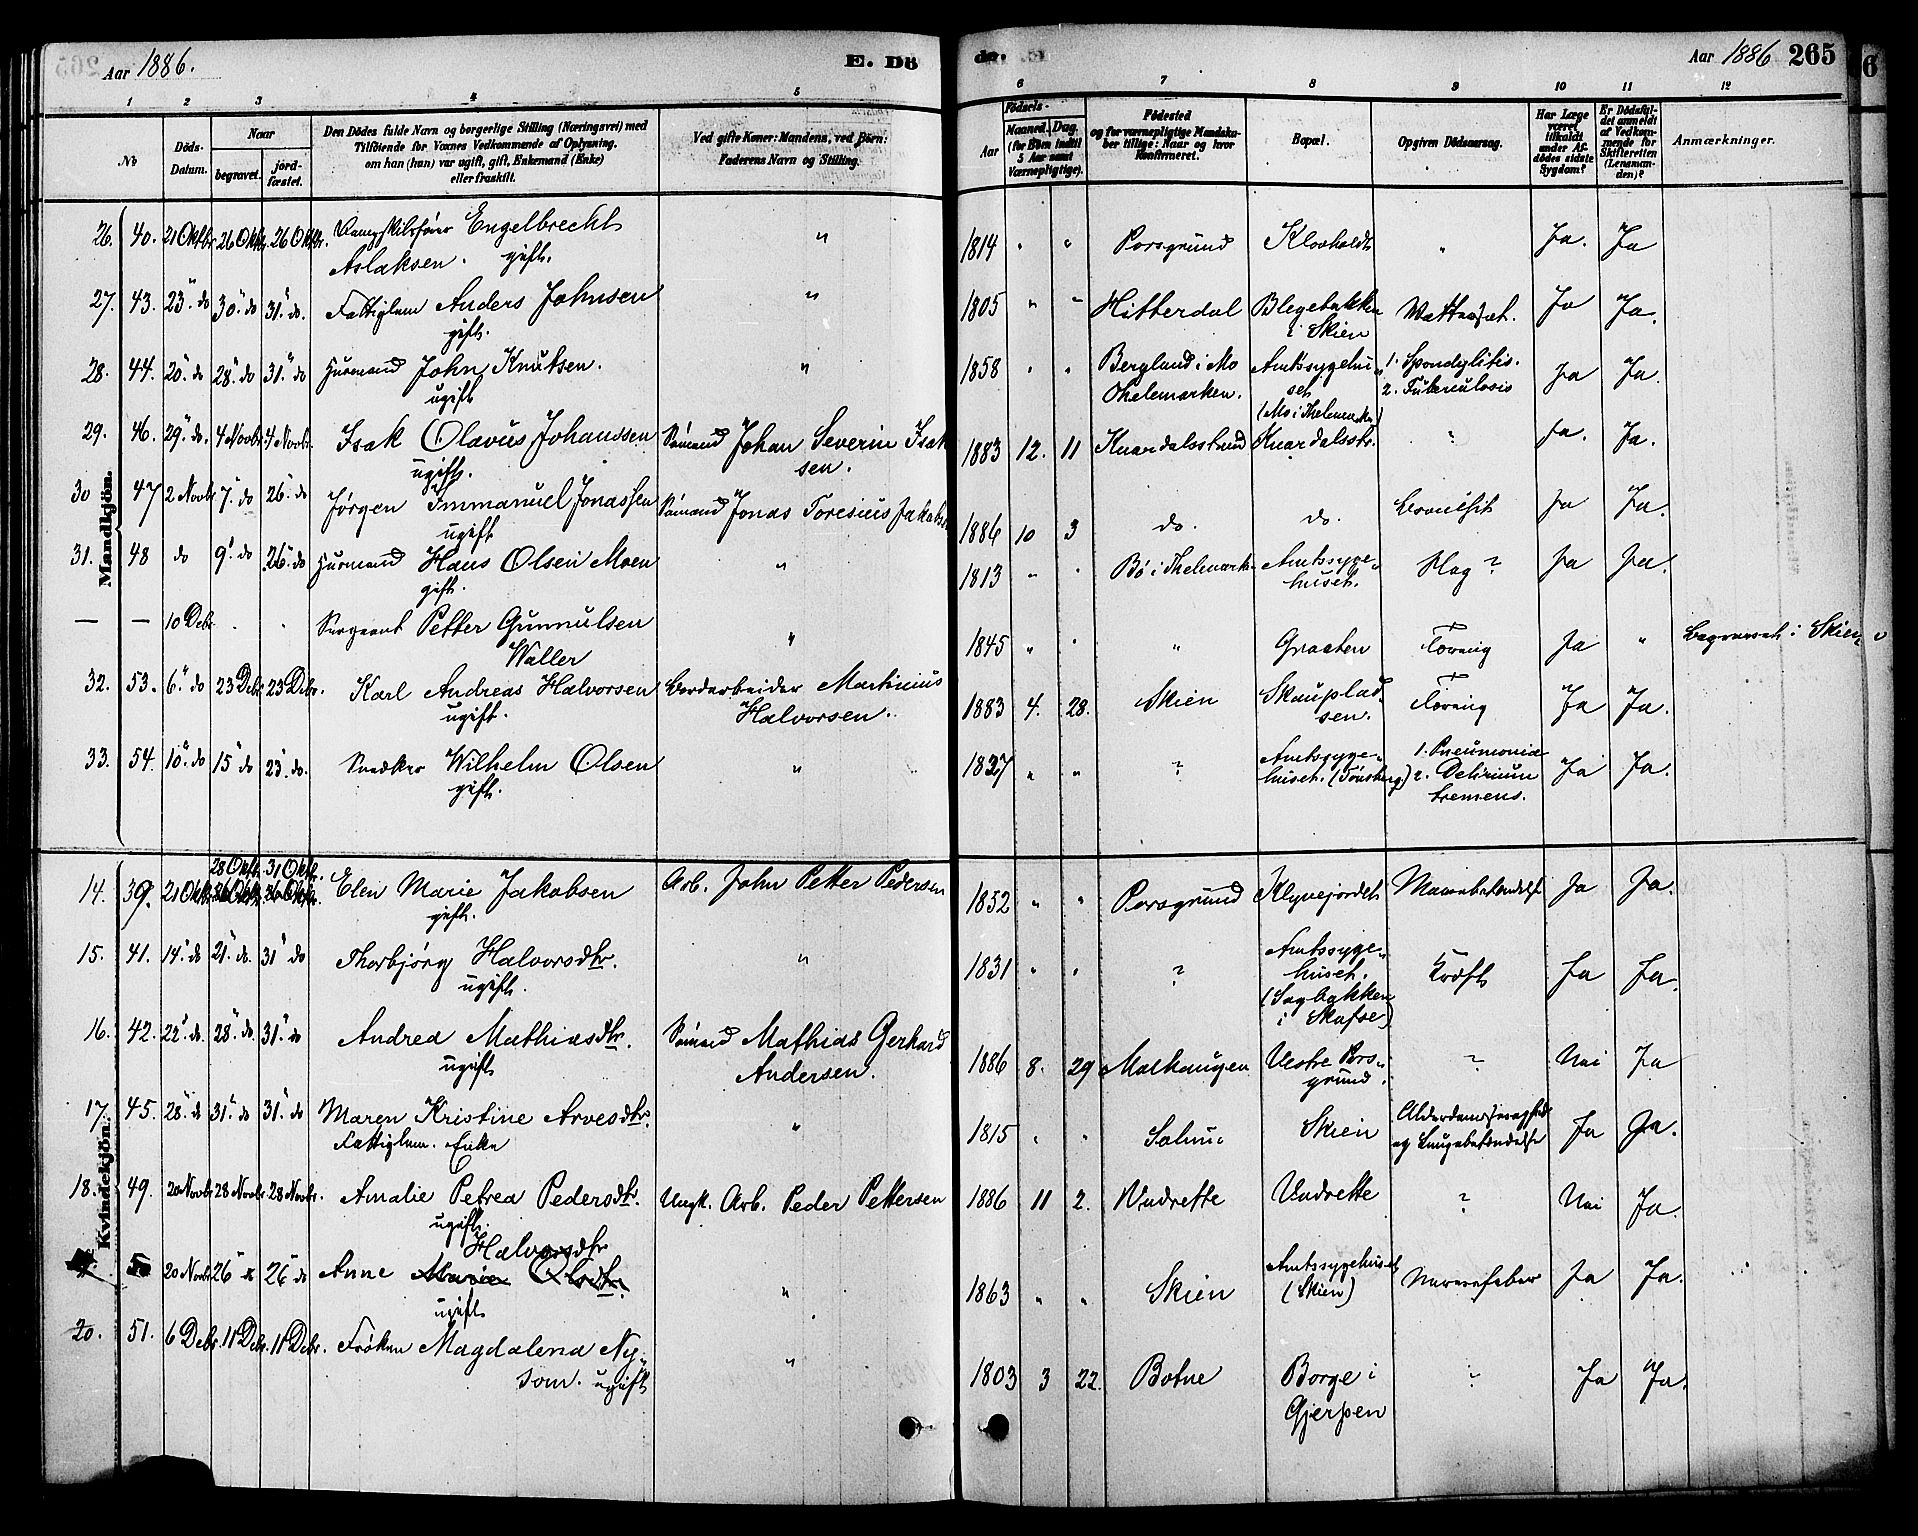 Aar 1886. E. Dö
de. Aar 1886 265
1 2 3 4 5 6 7 8 9 10 11 12
No Döds-Datum. Naar begravet. jordfæstet. Den Dödes fulde Navn og borgerlige Stilling (Næringsvei) med Tilföiende for Voxnes Vedkommende af Oplysning, om han (hun) var ugift, gift, Enkemand (Enke) eller fraskilt. Ved gifte Koner: Mandens, ved Börn: Faderens Navn og Stilling.
Födsels- Aar Maaned. Dag. (for Börn indtil 5 Aar samt Værnepligtige). Födested og for værnepligtige Mandskaber tillige: Naar og hvor Konfirmeret. Bopæl. Opgiven Dödsaarsag. Har Læge været tilkaldt under Afdödes sidste Sygdom? Er Dödsfaldet anmeldt af Vedkommende for Skifteretten (Lensmanden)? Anmærkninger.
Mandkjön.
26. 40. 21 Oktbr. 26 Oktbr. 26 Oktbr. Engelbrecht Aslaksen. gift. " 1814 " " Porsgrund Klovholdt " Ja. Ja
27. 43. 23" do 30" do 31" do. Fattiglem Anders Johnsen gift. " 1805 " " Hitterdal Blegebakken i Skien Wattersot. Ja Ja.
28. 44. 20" do 28" do 31" do Huusmand John Knutsen. ugift " 1858 " " Berglund i Mo Thelemarken. Amtssygehuset (Mo i Thelemarken) 1. Spondylitis. 2. Tuberculosis Ja Ja.
29. 46. 29" do. 4 Novbr. 4 Novbr. Isak Olavus Johanssen ugift. Sömand Johan Severin Isaksen. 1883 12. 11 Knardalsstrand Knardalsstr. " Ja. Ja.
30 47 2 Novbr 7" do 26" do Jörgen Immanuel Jonassen ugift Sömand Jonas Toresius Jakobsen 1886 10 3 do. do. Ja Ja.
31. 48 do 9" do 26" do Huusmand Hans Olsen Moen gift. " 1813 " " Bö i Thelemark. Amtssygehuset. Slag? Ja Ja.
— — 10 Debr. Sergeant Petter Gunnulsen Waller " 1845 " " " Graaten Tæring Ja " Begravet i Skien
32. 53. 6" do 23 Debr 23 Debr. Karl Andreas Halvorsen ugift. Jordarbeider Martinius Halvorsen. 1883 4. 28. Skien Skaupladsen. Tæring Ja Ja.
33. 54. 10" do 15" do 23" do. Snedker Wilhelm Olsen gift. " 1827 " " ? Amtssygehuset. (Tönsberg) 1. Pneumonia 2. Delirium tremens. Ja Ja.
Kvindekjön.
28 Oktbr. 31 Oktbr.
14. 39. 21 Oktbr 26 Oktbr. 26 Oktbr. Elen Marie Jakobsen gift. Arb. John Petter Pedersen 1852 " " Porsgrund Klyvejordet Mavebetændelse Ja Ja.
15. 41. 14" do 21" do. 31" do Thorbjörg Halvorsdtr. ugift. " 1831 " " ? Amtssygehuset. (Sagbakken i Skafse) Kræft Ja Ja.
16. 42. 22" do 28" do. 31" do Andrea Mathiasdtr. ugift Sömand Mathias Gerhard Andersen. 1886 8. 29 Malhaugen Vestre Porsgrund. ? Nei Ja
17. 45. 28" do 31" do 31" do Maren Kristine Arvesdtr. Fattiglem. Enke " 1815 " " Solum Skien Alderdomssvaghed og Lungebetændelse Ja Ja.
18. 49. 20 Novbr 28 Novbr 28 Novbr. Amalie Petrea Pedersdtr. ugift. Ungk. Arb. Peder Pettersen 1886 11 2. Vudrette Vudrette ? Nei Ja.
20 Novbr 26" do 26" do Anne Marie Olsdtr. Halvorsdtr ugift " 1863 " " Skien Amtssygehuset (Skien) Nervefeber Ja Ja.
20. 51. 6 Debr. 11 Debr. 11 Debr. Fröken Magdalena Nysom. ugift " 1803 3 22. Botne Borge i Gjerpen " Ja Ja.